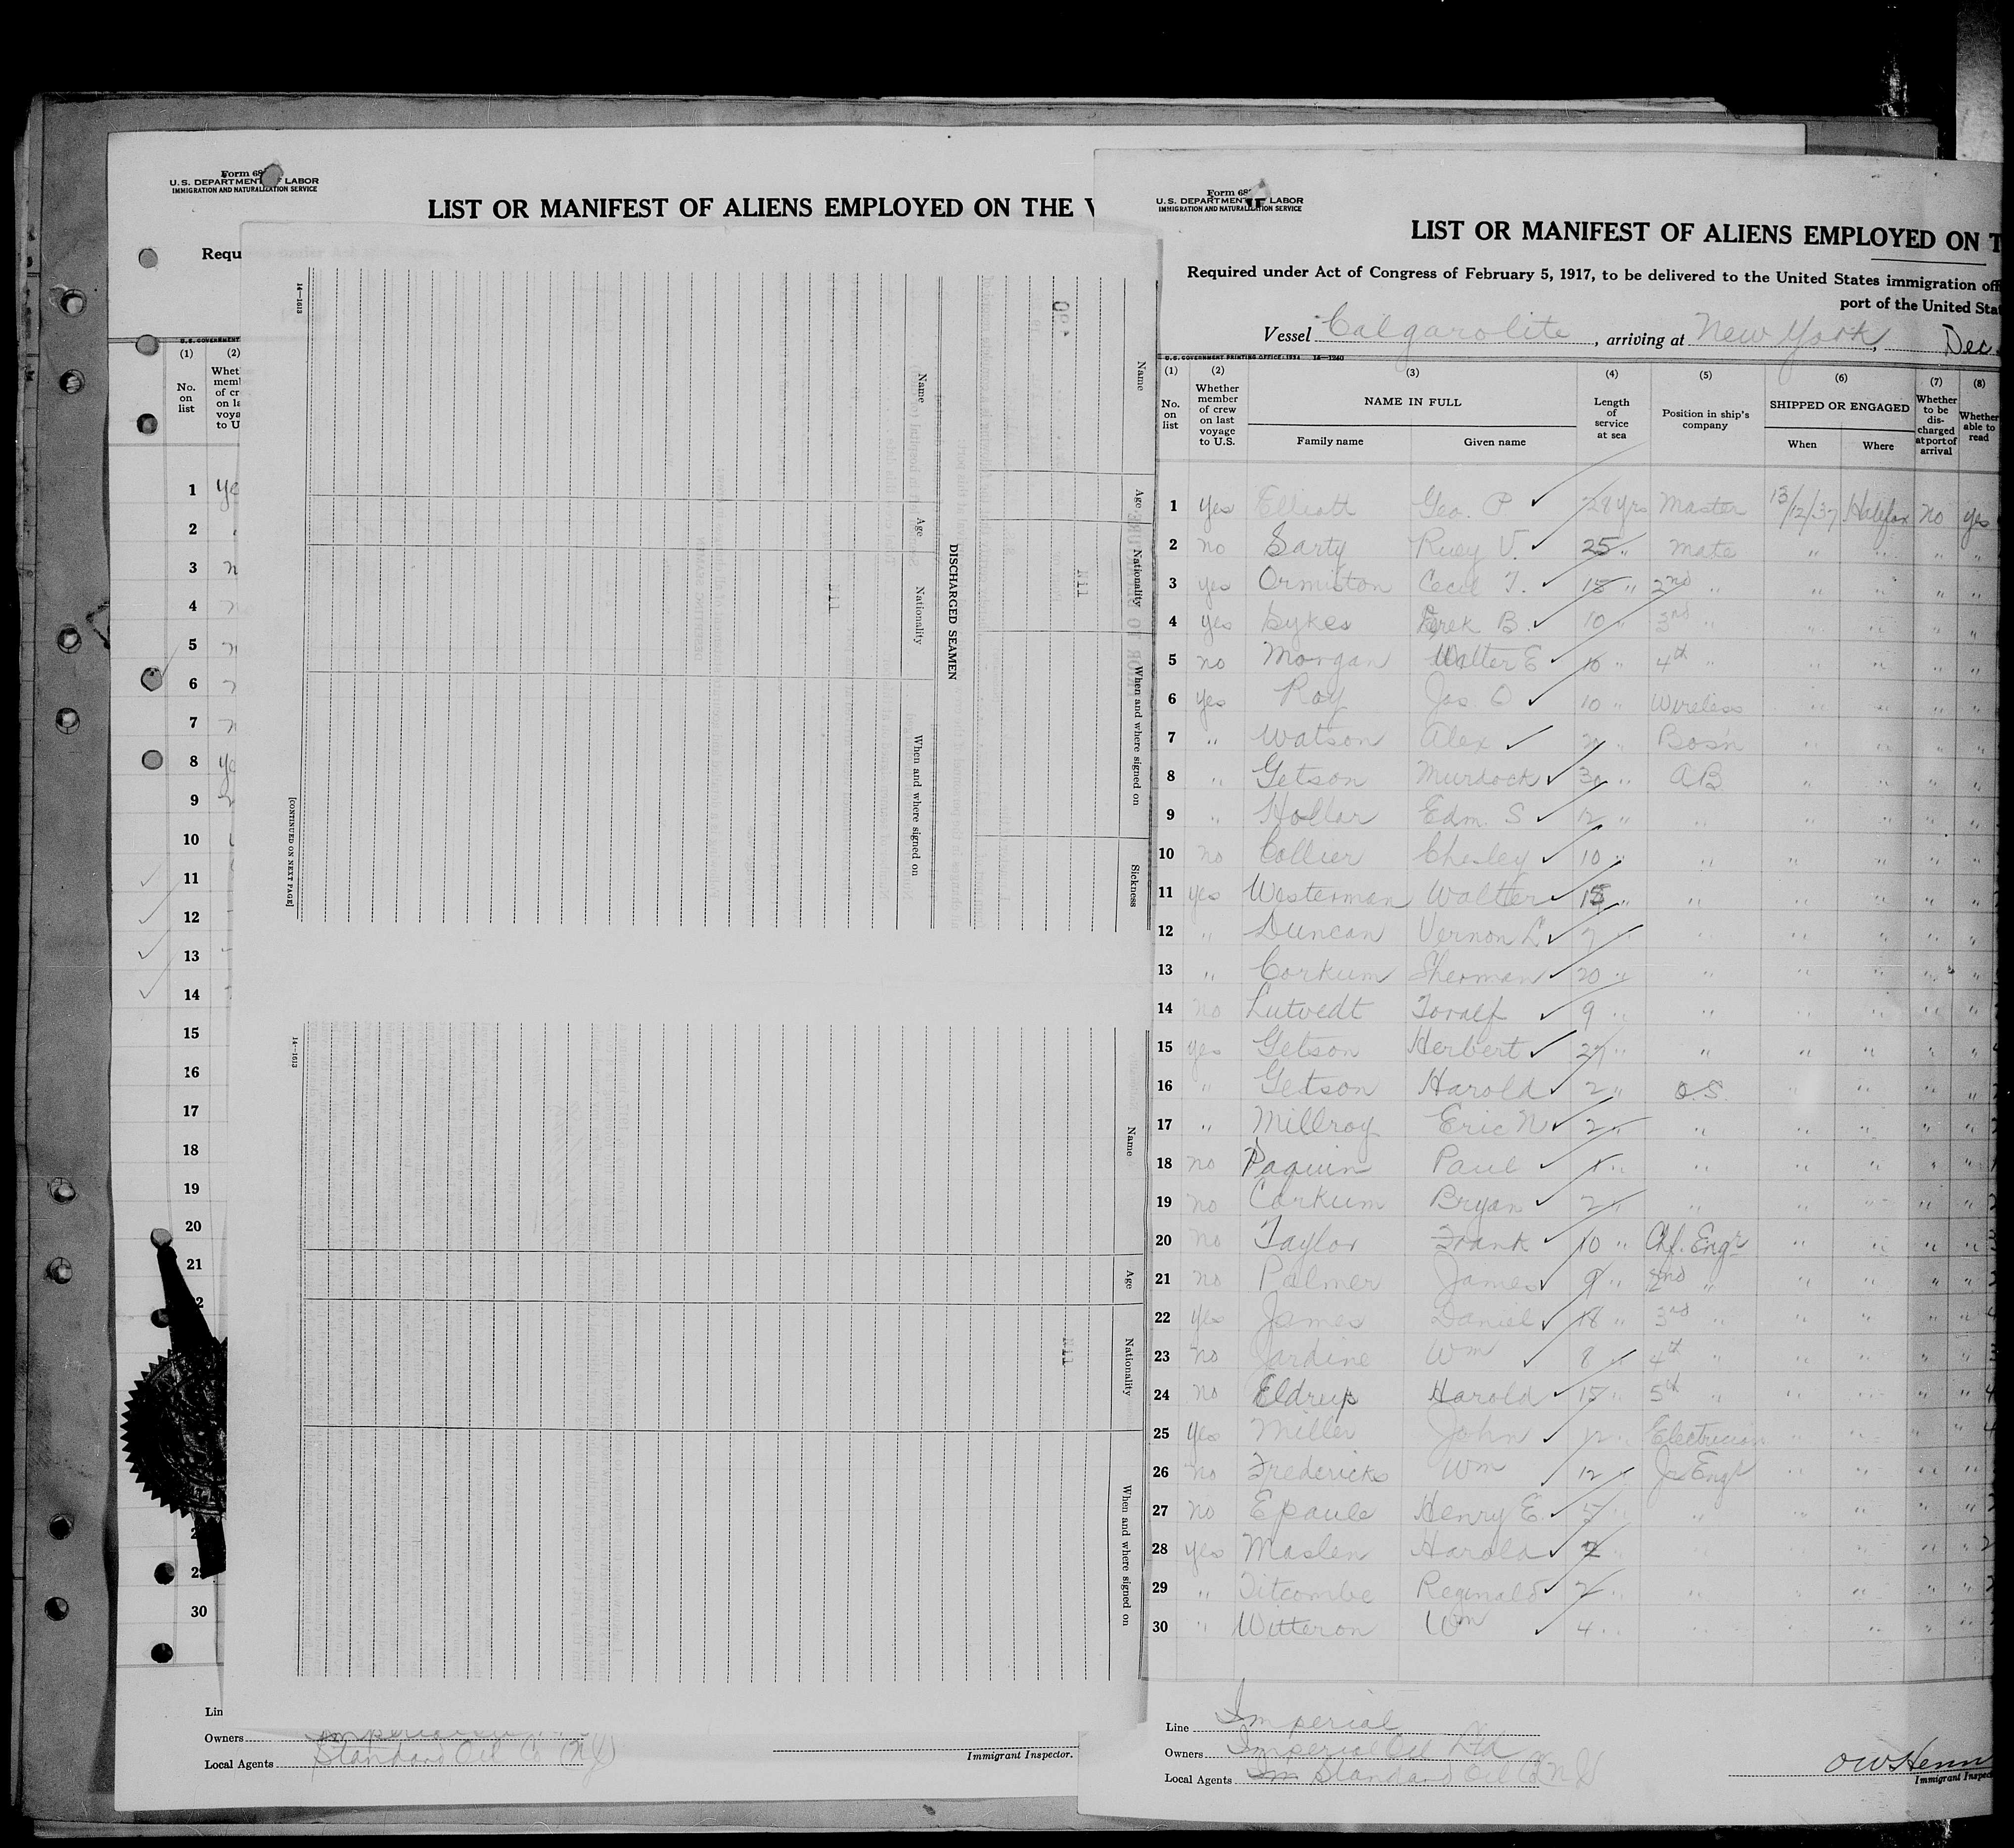 Form 68
U.S. DEPARTMENT OF LABOR
IMMIGRATION AND NATURALIZATION SERVICE
LIST OR MANIFEST OF ALIENS EMPLOYED ON THE V
Requ
U.S. GOVERNMENT
(1) (2)
No. on list
Whet
memb
of cr
on la
voya
to U
1 ye
2
3 n
4 n
5 n
6
7 n
8 ye
9
10
11
12
13
14
15
16
17
18
19
20
21
30
Lin
Owners
Local Agents Standard Oil Co (NJ)
Immigrant Inspector.
14—1613
[CONTINUED ON NEXT PAGE]
Name Age Nationality When and where signed on
Nil
DISCHARGED SEAMEN
Name Age Nationality When and where signed on Sickness
Nil
14—1613
Name Age Nationality When and where signed on
Nil
Form 68
U.S. DEPARTMENT OF LABOR
IMMIGRATION AND NATURALIZATION SERVICE
LIST OR MANIFEST OF ALIENS EMPLOYED ON T
Required under Act of Congress of February 5, 1917, to be delivered to the United States immigration off
port of the United Stat
Vessel Calgarolite, arriving at New York, Dec
U.S. GOVERNMENT PRINTING OFFICE: 1934 14—1240
(1) (2) (3) (4) (5) (6) (7) (8)
No. on list
Whether member of crew on last voyage to U.S.
NAME IN FULL
Family name Given name
Length of service at sea
Position in ship's company
SHIPPED OR ENGAGED
When Where
Whether to be discharged at port of arrival
Whether able to read
1 Yes Elliott Geo. P 29 yrs Master 13/12/37 Halifax no yes
2 no Sarty Ruey V. 25 " mate " " " "
3 yes Ormiston Cecil T. 15 " 2nd " " " " "
4 yes Sykes Derek B. 10 " 3rd " " " " "
5 no Morgan Walter E 16 " 4th " " " " "
6 yes Roy Jas. O 10 " Wireless " " " "
7 " Watson Alex 20 " Bos'n " " " "
8 " Getson Murdock 30 " AB " " " "
9 " Hollar Edm. S 12 " " " " " "
10 no Collier Chesley 10 " " " " " "
11 yes Westerman Walter 15 " " " " " "
12 " Duncan Vernon L 7 " " " " " "
13 " Corkum Sherman 20 " " " " " "
14 no Lutvedt Toralf 9 " " " " " "
15 yes Getson Herbert 27 " " " " " "
16 " Getson Harold 2 " O.S. " " " "
17 " Millroy Eric N 2 " " " " " "
18 no Paquin Paul 1 " " " " " "
19 no Corkum Bryan 2 " " " " " "
20 no Taylor Frank 10 " Chf. Engr " " " "
21 no Palmer James 9 " 2nd " " " " "
22 yes James Daniel 18 " 3rd " " " " "
23 no Jardine Wm 8 " 4th " " " " "
24 no Eldrup Harold 15 " 5th " " " " "
25 yes Miller John 12 " Electrician " " " "
26 no Fredericks Wm 12 " Jr Engr " " " "
27 no Epaule Henry E. 5 " " " " " "
28 yes Maslen Harold 2 " " " " " "
29 " Titcombe Reginald 2 " " " " " "
30 " Witteron Wm 4 " " " " " "
Line Imperial
Owners Imperial Oil Ltd
Local Agents Standard Oil Co NJ
OW Henn
Immigrant Inspec